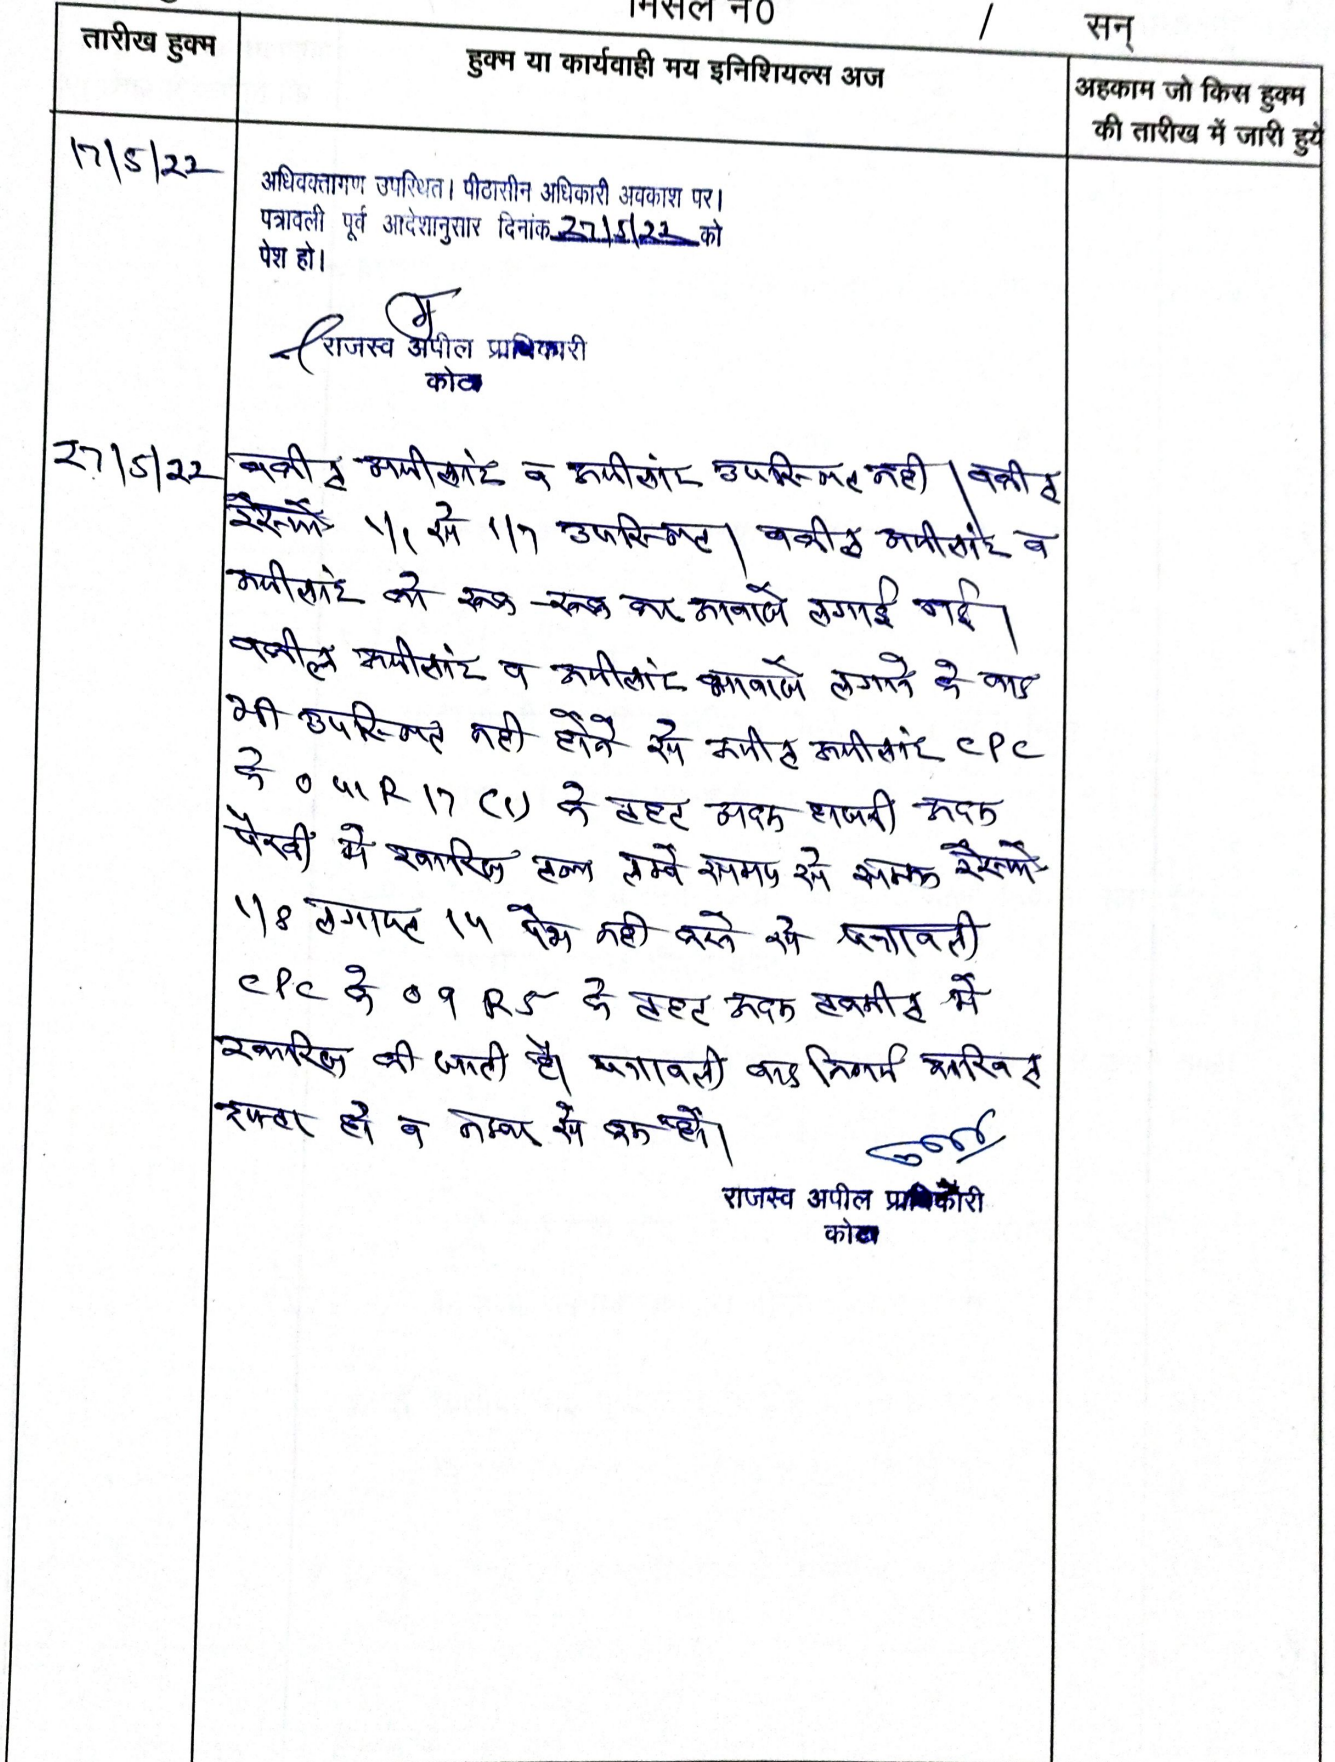 मिसल न0 / सन्
तारीख हुक्म
हुक्म या कार्यवाही मय इनिशियल्स अज
अहकाम जो किस हुक्म
की तारीख में जारी हुये
17/5/22
अधिवक्तागण उपस्थित। पीठासीन अधिकारी अवकाश पर।
पत्रावली पूर्व आदेशानुसार दिनांक 27/5/22 को
पेश हो।
राजस्व अपील प्राधिकारी
कोटा
27/5/22
वकील अपीलांट व अपीलांट उपस्थित नही। वकील
रेस्पो 1/1 से 1/7 उपस्थित। वकील अपीलांट व
अपीलांट को रूक-रूक कर आवाजे लगाई गई।
वकील अपीलांट व अपीलांट आवाजे लगाने के बाद
भी उपस्थित नही होने से अपील अपीलांट CPC
के O 41 R 17 (1) के तहत अदम हाजरी अदम
पैरवी में खारिज तथा लम्बे समय से सम्मन रेस्पो
1/8 लगायत 14 पेश नही करने से पत्रावली
CPC के O 9 R 5 के तहत अदम तकमील में
खारिज की जाती है। पत्रावली बाद निर्णय दाखिल
दफ्तर हो व नम्बर से कम हो।
राजस्व अपील प्राधिकारी
कोटा